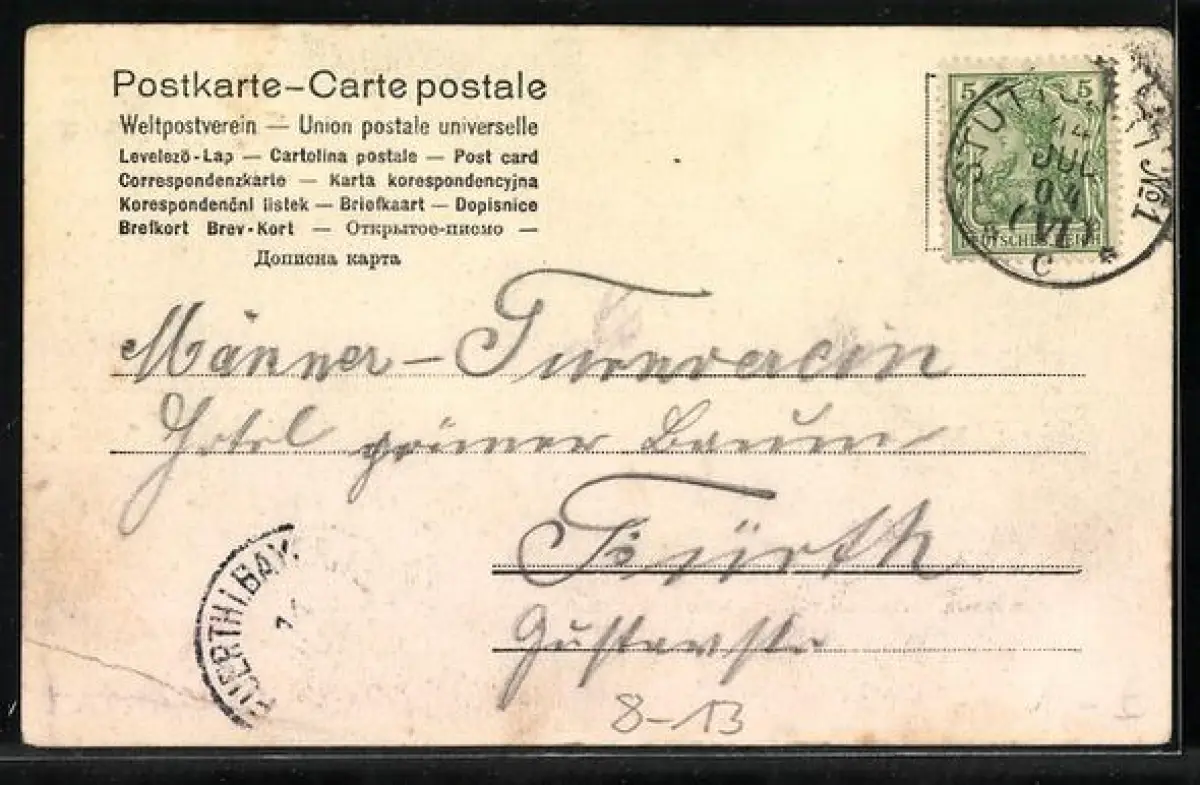 Postkarte – Carte postale
Weltpostverein — Union postale universelle
Levelező-Lap — Cartolina postale — Post card
Correspondenzkarte — Karta korespondencyjna
Korespondenční lístek — Briefkaart — Dopisnice
Brefkort Brev-Kort — Открытое-письмо —
Дописна карта
5 5
DEUTSCHES REICH
JUL
04
(VI)
C
No 1
Männer-Turnverein
Hotel grüner Baum
Fürth
Gustavstr
FUERTH I. BAY.
8-13